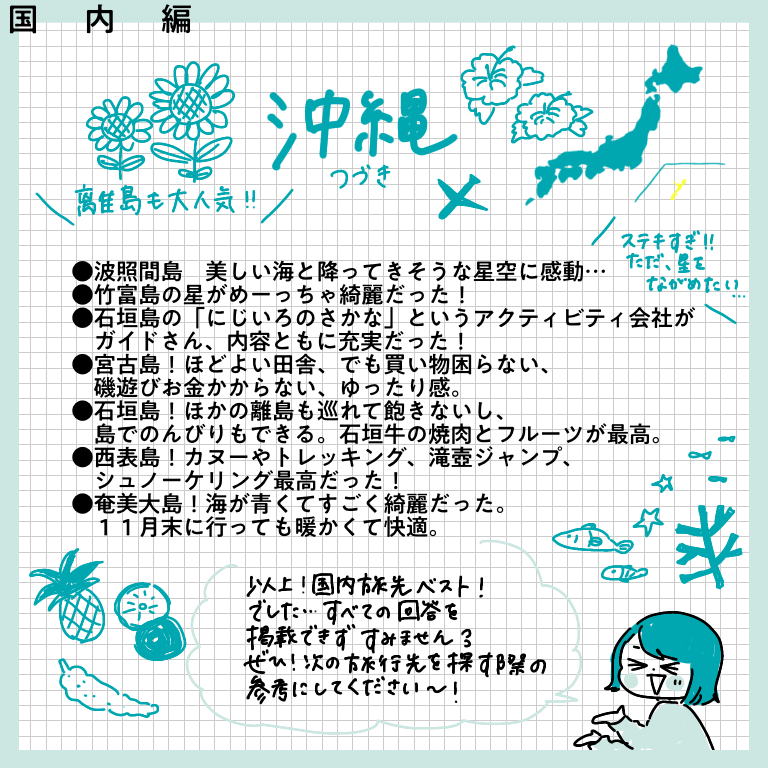 国内編
沖縄
つづき
離島も大人気!!
ステキすぎ!!
ただ、星を
ながめたい…
●波照間島　美しい海と降ってきそうな星空に感動…
●竹富島の星がめーっちゃ綺麗だった！
●石垣島の「にじいろのさかな」というアクティビティ会社が
ガイドさん、内容ともに充実だった！
●宮古島！ほどよい田舎、でも買い物困らない、
磯遊びお金かからない、ゆったり感。
●石垣島！ほかの離島も巡れて飽きないし、
島でのんびりもできる。石垣牛の焼肉とフルーツが最高。
●西表島！カヌーやトレッキング、滝壺ジャンプ、
シュノーケリング最高だった！
●奄美大島！海が青くてすごく綺麗だった。
１１月末に行っても暖かくて快適。
以上！国内旅先ベスト！
でした…すべての回答を
掲載できずすみません３
ぜひ！次の旅行先を探す際の
参考にしてください〜！